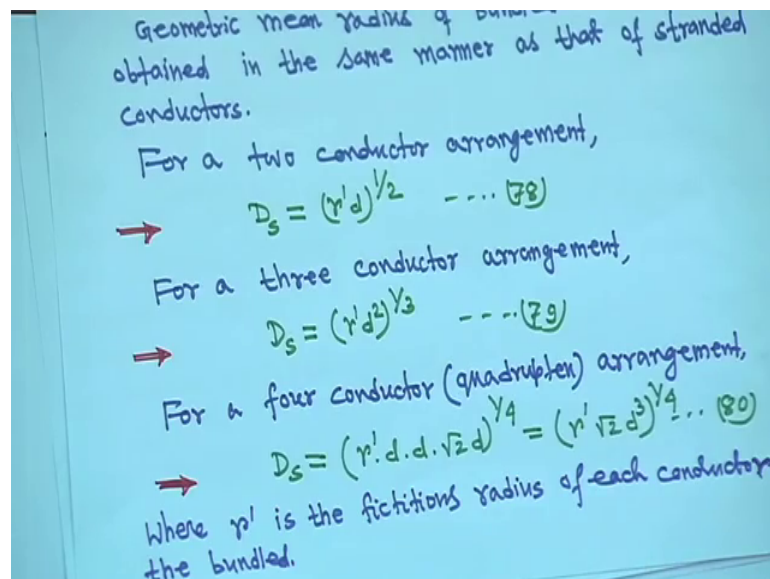 Geometric mean radius of
obtained in the same manner as that of stranded
conductors.
For a two conductor arrangement,
→ Ds = (r'd)^1/2 ---- (78)
For a three conductor arrangement,
→ Ds = (r'd²)^1/3 ---- (79)
For a four conductor (quadruplex) arrangement,
→ Ds = (r'.d.d.√2d)^1/4 = (r'√2d³)^1/4 ... (80)
Where r' is the fictitious radius of each conductor
the bundled.